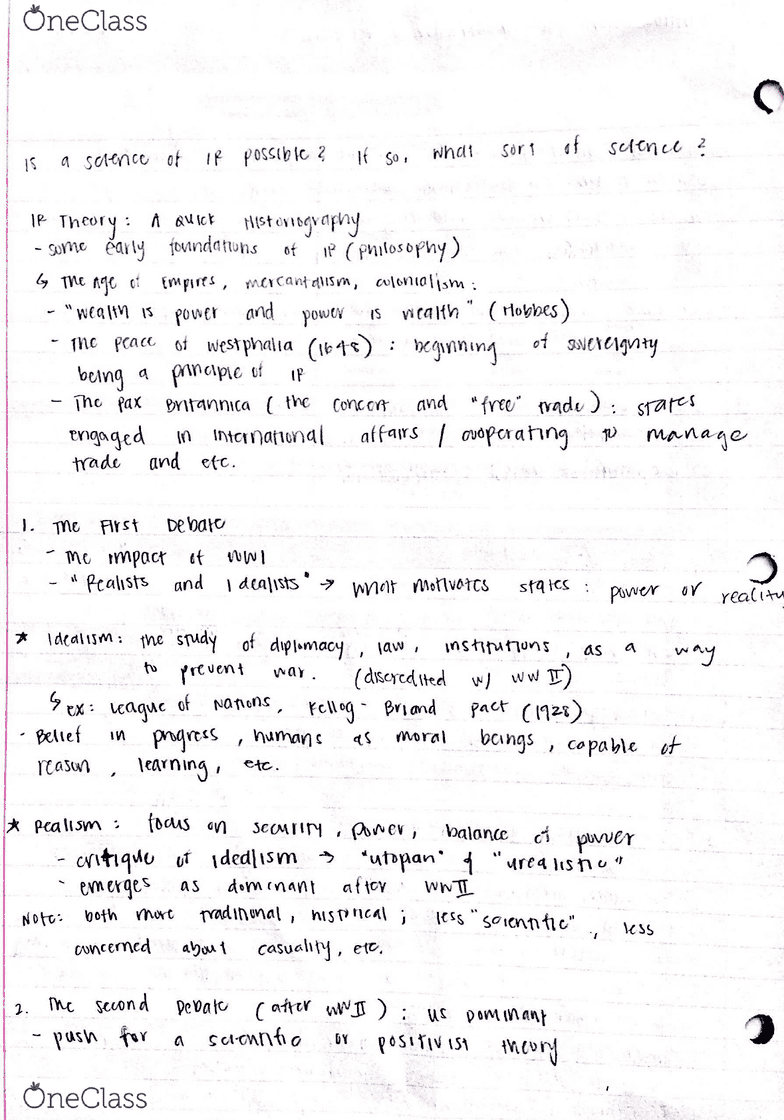 OneClass
Is a science of IR possible? If so, what sort of science?
IR Theory: A Quick Historiography
- some early foundations of IR (philosophy)
↳ The Age of Empires, mercantalism, colonialism:
- "wealth is power and power is wealth" (Hobbes)
- The peace of westphalia (1648): beginning of sovereignty
being a principle of IR
- The Pax Britannica (the concert and "free" trade): states
engaged in international affairs / cooperating to manage
trade and etc.
1. The First Debate
- The impact of WWI
- "Realists and Idealists" → what motivates states: power or reality
* Idealism: the study of diplomacy, law, institutions, as a way
to prevent war. (discredited w/ WWII)
↳ ex: League of Nations, Kellog-Briand pact (1928)
- Belief in progress, humans as moral beings, capable of
reason, learning, etc.
* Realism: focus on security, power, balance of power
- critique of idealism → "utopan" & "urealistic"
- emerges as dominant after WWII
Note: both more traditional, historical; less "scientific", less
concerned about casuality, etc.
2. The second Debate (after WWII): US Dominant
- push for a scientific or positivist theory
OneClass